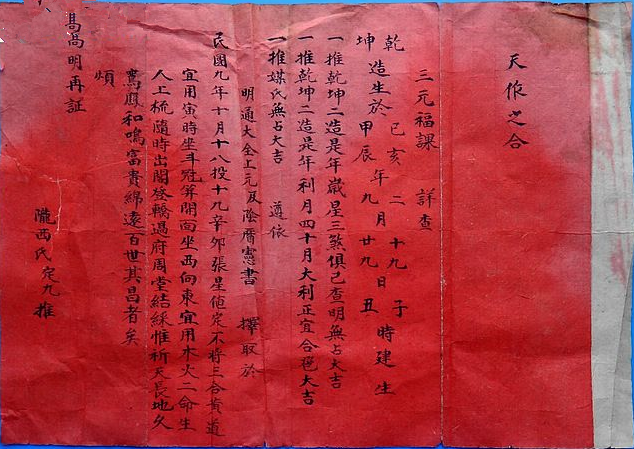 天作之合
三元福課 詳查
乾 己亥 二 十九 子
造生於 年 月 日 時建生
坤 甲辰 九 廿九 丑
一推乾坤二造是年歲星三煞俱已查明無占大吉
一推乾坤二造是年利月四十月大利正宜合卺大吉
一推媒氏無占大吉 遵依
明通大全上元及陰曆憲書 擇取於
民國九年十月十八投十九辛卯張星值定不將三合黃道
宜用寅時坐斗冠笄開面坐西向東宜用木火二命生
人上梳隨時出閣登轎過府周堂結綵惟祈天長地久
鸞鳳和鳴富貴綿遠百世其昌者矣
頌
高明再証
隴西氏定九推